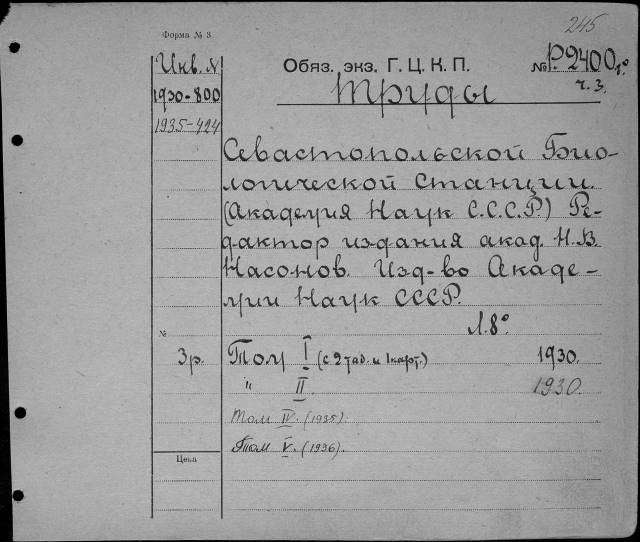 245
Форма № 3
Инв. №
1930-800
1935-424
Обяз. экз. Г. Ц. К. П.
№ Р.2400 1°
ч. 3.
Труды
Севастопольской Био-
логической Станции.
(Академия Наук С.С.С.Р.) Ре-
дактор издания акад. Н.В.
Насонов. Изд-во Акаде-
мии Наук СССР.
Л. 8°
№
3 р.
Том I (с 2 таб. и 1 карт.) 1930.
" II 1930.
Том IV. (1935).
Том V. (1936).
Цена